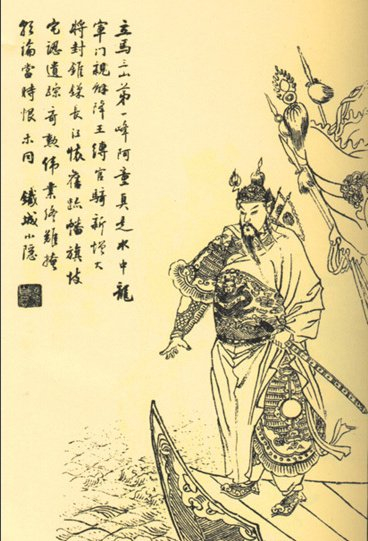 立馬三山第一峰阿童真是水中龍
軍门親解降王縛官騎新增大
將封錐鎖長江懷舊跡幡旗
宅認遺蹤奇勳偉業終難掩
論當時恨未同 鐵城小隱